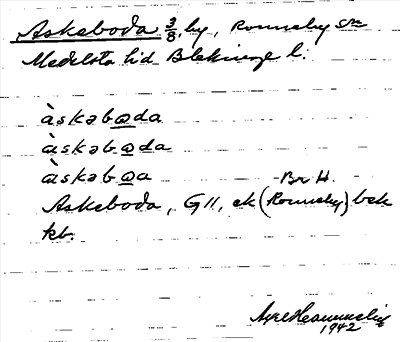 Askeboda 3/8, by, Ronneby sn
Medelsta hd Blekinge l.
àskəboda
àskəboda
àskəboa
Br H.
Askeboda, G11, ek (Ronneby) bek
kb.
1942